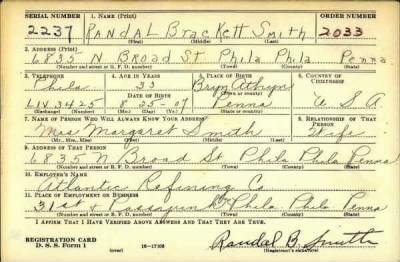 SERIAL NUMBER 1. NAME (Print) ORDER NUMBER
2237 RANDAL Brackett Smith 2033
(First) (Middle) (Last)
2. ADDRESS (Print)
6835 N Broad St Phila Phila Penna
(Number and street or R. F. D. number) (Town) (County) (State)
3. TELEPHONE 4. AGE IN YEARS 5. PLACE OF BIRTH 6. COUNTRY OF CITIZENSHIP
Phila 33 Bryn Athyn
DATE OF BIRTH (Town or county)
LIV 3425 8-25-07 Penna U S A
(Exchange) (Number) (Mo.) (Day) (Yr.) (State or country)
7. NAME OF PERSON WHO WILL ALWAYS KNOW YOUR ADDRESS 8. RELATIONSHIP OF THAT PERSON
Mrs Margaret Smith Wife
(Mr., Mrs., Miss) (First) (Middle) (Last)
9. ADDRESS OF THAT PERSON
6835 N Broad St Phila Phila Penna
(Number and street or R. F. D. number) (Town) (County) (State)
10. EMPLOYER'S NAME
Atlantic Refining Co
11. PLACE OF EMPLOYMENT OR BUSINESS
31st & Passyunk Phila Phila Penna
(Number and street or R. F. D. number) (Town) (County) (State)
I AFFIRM THAT I HAVE VERIFIED ABOVE ANSWERS AND THAT THEY ARE TRUE.
REGISTRATION CARD
D. S. S. Form 1 (over) Randal B. Smith
(Registrant's signature)